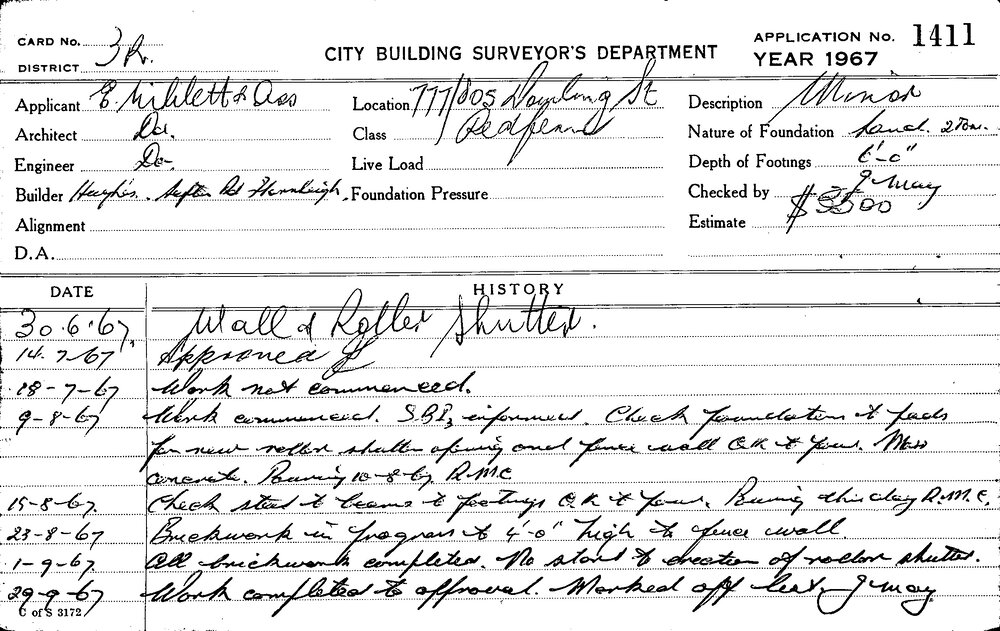 CARD No. 3R.
DISTRICT
CITY BUILDING SURVEYOR'S DEPARTMENT
APPLICATION No. 1411
YEAR 1967
Applicant & Ass
Location 777/805 Dowling St
Redfern
Description Minor
Architect Do.
Class
Nature of Foundation Sand. 2 Ton.
Engineer Do-
Live Load
Depth of Footings 6'-0"
Builder Hughes. Sefton Rd Thornleigh.
Foundation Pressure
Checked by J May
Alignment
Estimate $3500
D.A.
DATE HISTORY
30.6.67 Wall & Roller Shutter.
14.7.67 Approved
18-7-67 Work not commenced.
9-8-67 Work commenced. S.B.I. informed. Check foundation & pads
for new roller shutter opening and fence wall O.K. to pour. Mass
concrete. Pouring 10-8-67 R.M.C
15-8-67. Check steel to beams & footings O.K. to pour. Pouring this day R.M.C.
23-8-67 Brickwork in progress to 4'-0" high to fence wall.
1-9-67 All brickwork completed. No start to erection of roller shutter.
29-9-67 Work completed to approval. Marked off list J May
C of S 3172